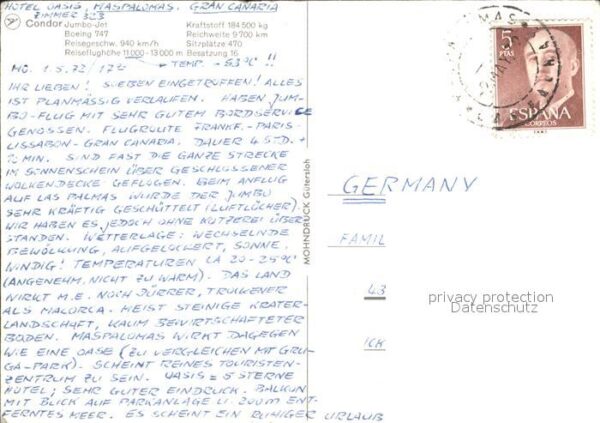 HOTEL OASIS, MASPALOMAS, GRAN CANARIA
ZIMMER 323
Condor Jumbo-Jet
Boeing 747
Reisegeschw. 940 km/h
Reiseflughöhe 11000-13000 m
Kraftstoff 184 500 kg
Reichweite 9 700 km
Sitzplätze 470
Besatzung 16
MO. 1.5.72/17h TEMP. -53°C !!
IHR LIEBEN! SOEBEN EINGETROFFEN! ALLES
IST PLANMÄSSIG VERLAUFEN. HABEN JUM-
BO-FLUG MIT SEHR GUTEM BORDSERVICE
GENOSSEN. FLUGROUTE FRANKF.-PARIS-
LISSABON-GRAN CANARIA. DAUER 4 STD. +
MIN. SIND FAST DIE GANZE STRECKE
IM SONNENSCHEIN ÜBER GESCHLOSSENER
WOLKENDECKE GEFLOGEN. BEIM ANFLUG
AUF LAS PALMAS WURDE DER JUMBO
SEHR KRÄFTIG GESCHÜTTELT (LUFTLÖCHER).
WIR HABEN ES JEDOCH OHNE KOTZEREI ÜBER
STANDEN. WETTERLAGE: WECHSELNDE
BEWÖLKUNG, AUFGELOCKERT, SONNE,
WINDIG! TEMPERATUREN CA 20-25°C
(ANGENEHM, NICHT ZU WARM). DAS LAND
WIRKT M.E. NOCH DÜRRER, TROCKENER
ALS MALORCA. MEIST STEINIGE KRATER-
LANDSCHAFT, KAUM BEWIRTSCHAFTETER
BODEN. MASPALOMAS WIRKT DAGEGEN
WIE EINE OASE (ZU VERGLEICHEN MIT GRU-
GA-PARK). SCHEINT REINES TOURISTEN-
ZENTRUM ZU SEIN. OASIS = 5 STERNE
HOTEL; SEHR GUTER EINDRUCK. BALKON
MIT BLICK AUF PARKANLAGE U. 200M ENT-
FERNTES MEER. ES SCHEINT EIN RUHIGER URLAUB
MOHNDRUCK Gütersloh
5
PTAS
ESPAÑA
CORREOS
GERMANY
FAMIL
43
ICK
privacy protection
Datenschutz